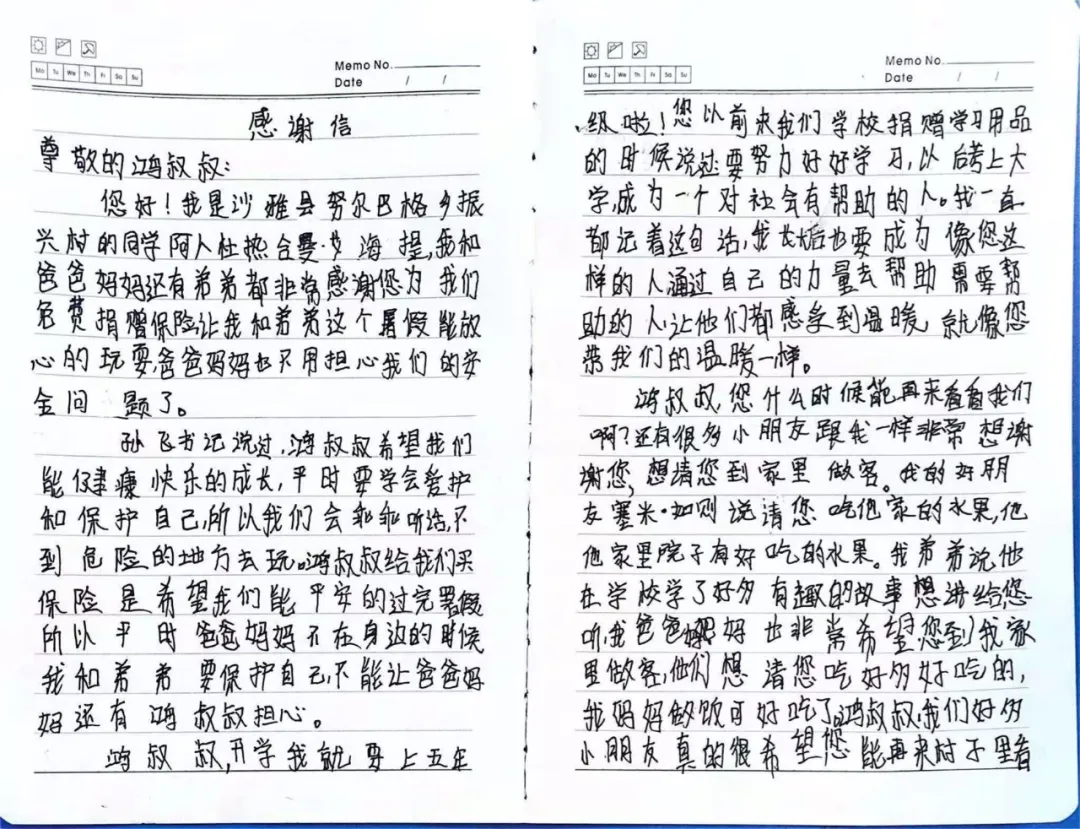 Memo No.
Mo Tu We Th Fr Sa Su
Date / /
感谢信
尊敬的鸿叔叔:
您好!我是沙雅县努尔巴格乡振
兴村的同学阿人杜热合曼·艾海提,我和
爸爸妈妈还有弟弟都非常感谢您为我们
免费捐赠保险让我和弟弟这个暑假能放
心的玩耍,爸爸妈妈也不用担心我们的安
全问题了。
孙飞书记说过,鸿叔叔希望我们
能健康快乐的成长,平时要学会爱护
和保护自己,所以我们会乖乖听话,不
到危险的地方去玩。鸿叔叔给我们买
保险是希望我们能平安的过完暑假
所以平时爸爸妈妈不在身边的时候
我和弟弟要保护自己,不能让爸爸妈
妈还有鸿叔叔担心。
鸿叔叔,开学我就要上五年
Memo No.
Mo Tu We Th Fr Sa Su
Date / /
级啦!您以前来我们学校捐赠学习用品
的时候说过要努力好好学习,以后考上大
学,成为一个对社会有帮助的人。我一直
都记着这句话,我长大后也要成为像您这
样的人通过自己的力量去帮助需要帮
助的人,让他们都感受到温暖,就像您
带我们的温暖一样。
鸿叔叔,您什么时候能再来看看我们
啊?还有很多小朋友跟我一样非常想谢
谢您,想请您到家里做客。我的好朋
友塞米·如则说请您吃他家的水果,他
他家里院子有好吃的水果。我弟弟说他
在学校学了好多有趣的故事想讲给您
听,我爸爸妈妈好也非常希望您到我家
里做客,他们想请您吃好多好吃的,
我妈妈做饭可好吃了。鸿叔叔,我们好多
小朋友真的很希望您能再来村子里看